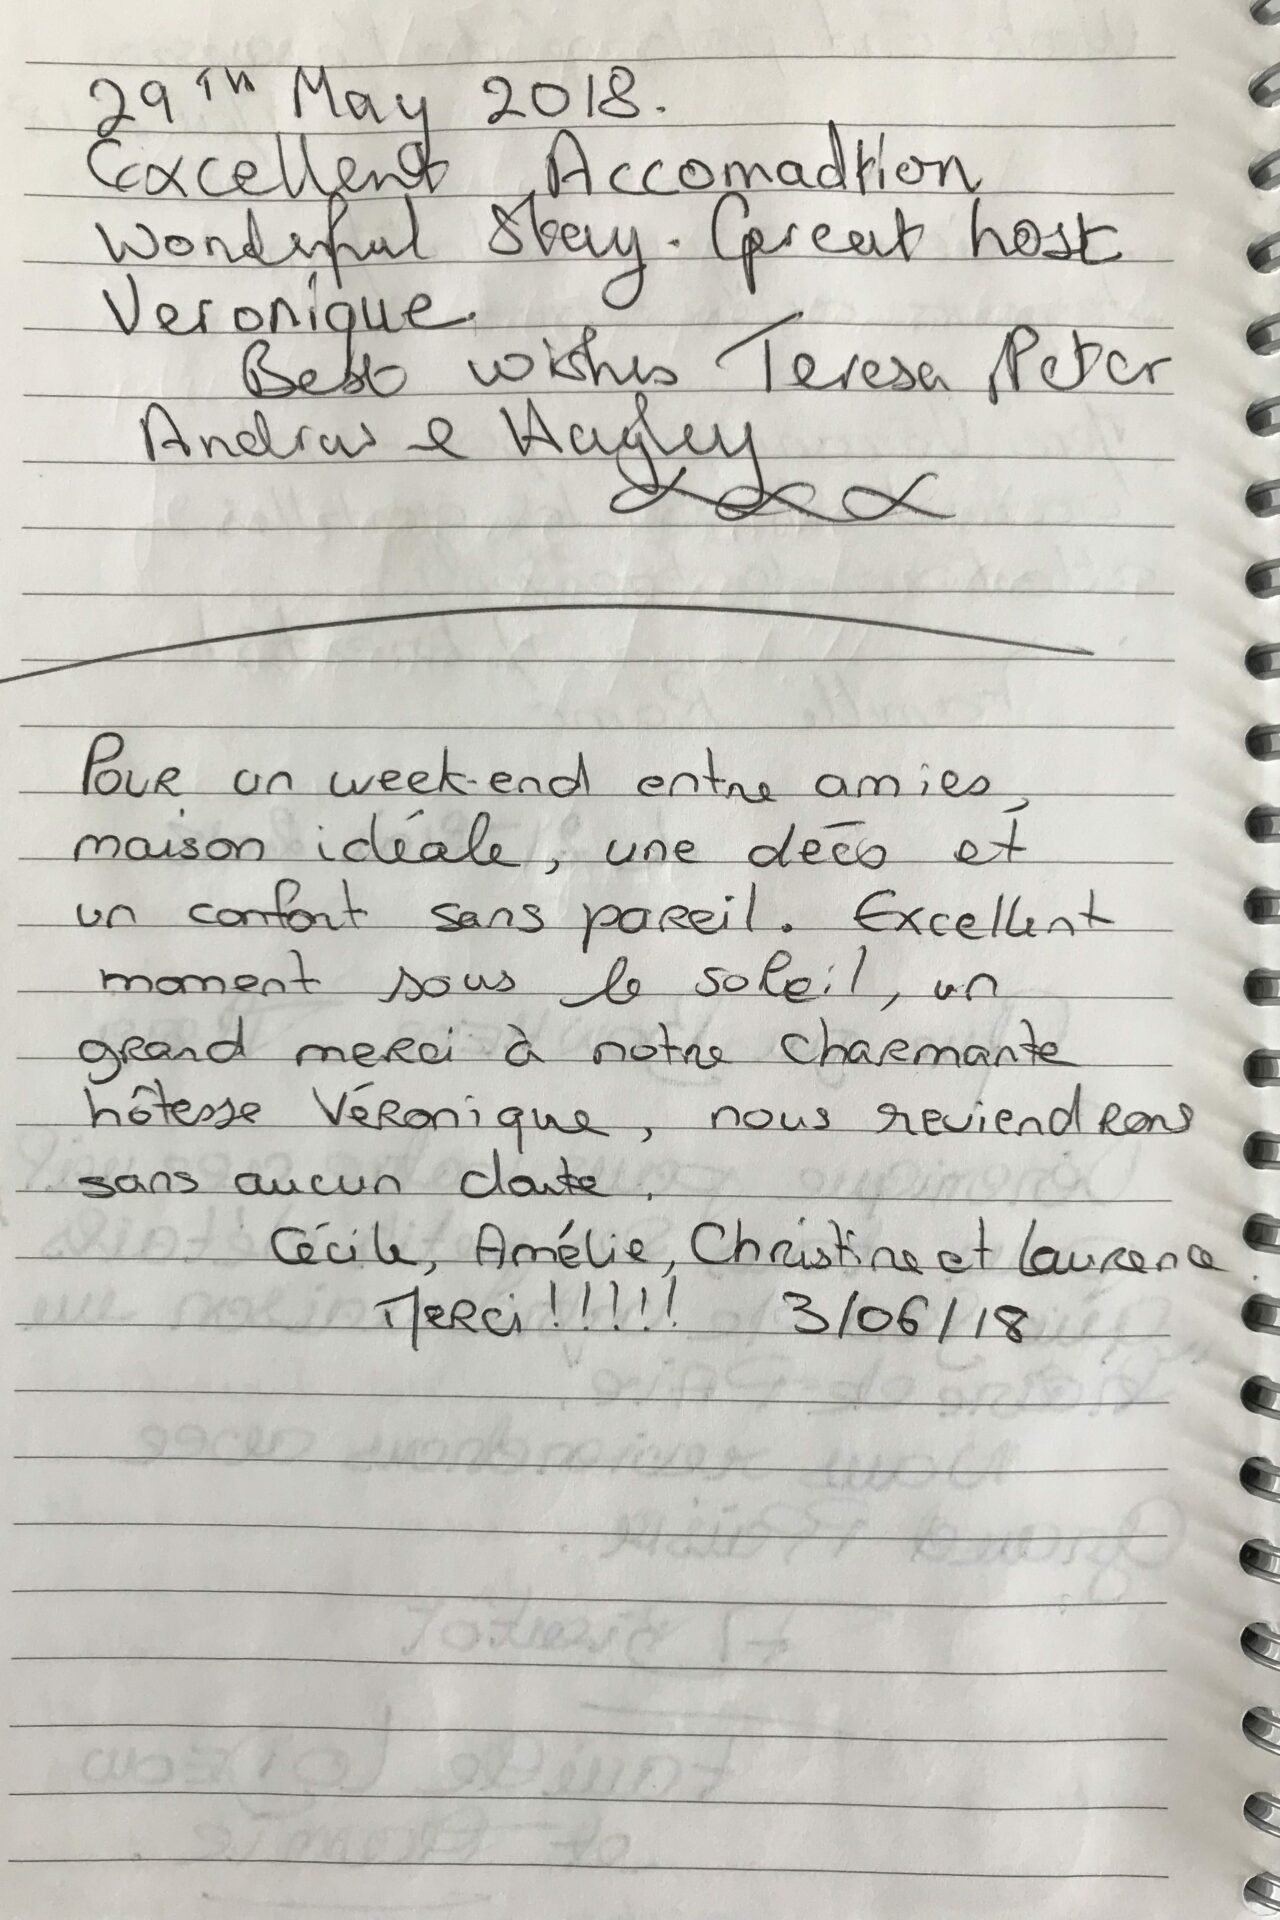 29TH May 2018.
Excellent Accomadtion
Wonderful Stay. Great host
Veronique.
Best wishes Teresa, Peter
Andras & Hayley
xxx
Pour un week-end entre amies,
maison idéale, une déco et
un confort sans pareil. Excellent
moment sous le soleil, un
grand merci à notre charmante
hôtesse Véronique, nous reviendrons
sans aucun doute.
Cécile, Amélie, Christine et Laurence.
Merci !!!!!! 3/06/18